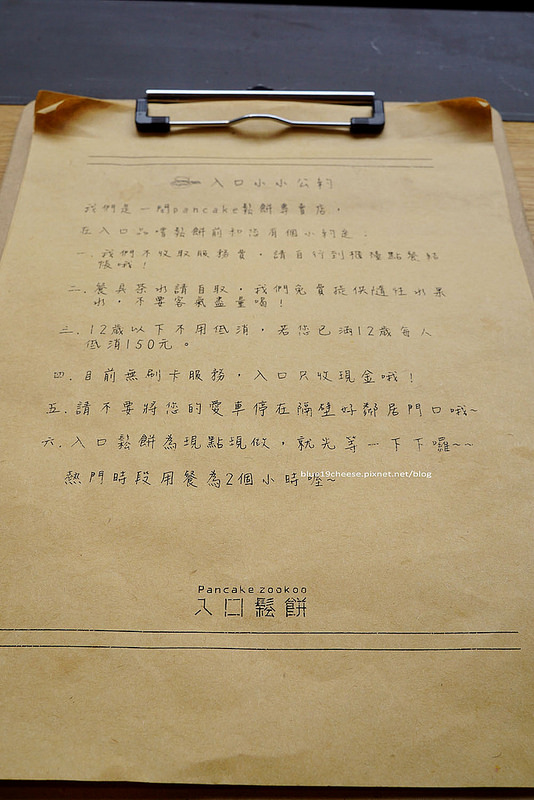 入口小小公約
我們是一間pancake鬆餅專賣店，
在入口品嚐鬆餅前和沒有個小約定：
一.我們不收取服務費，請自行到櫃檯點餐結
帳哦！
二.餐具茶水請自取，我們免費提供隨性水果
水，不要客氣盡量喝！
三.12歲以下不用低消，若您已滿12歲每人
低消150元。
四.目前無刷卡服務，入口只收現金哦！
五.請不要將您的愛車停在隔壁好鄰居門口哦~
六.入口鬆餅為現點現做，就先等一下下囉~~
熱門時段用餐為2個小時喔~
blue19cheese.pixnet.net/blog
Pancake zookoo
入口鬆餅